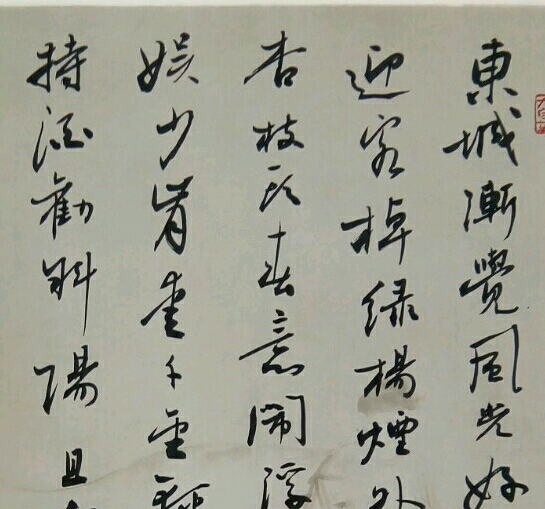 東城漸覺風光好
迎客棹綠楊煙外
杏枝頭春意鬧浮
娱少肯愛千金
持酒勸斜陽且